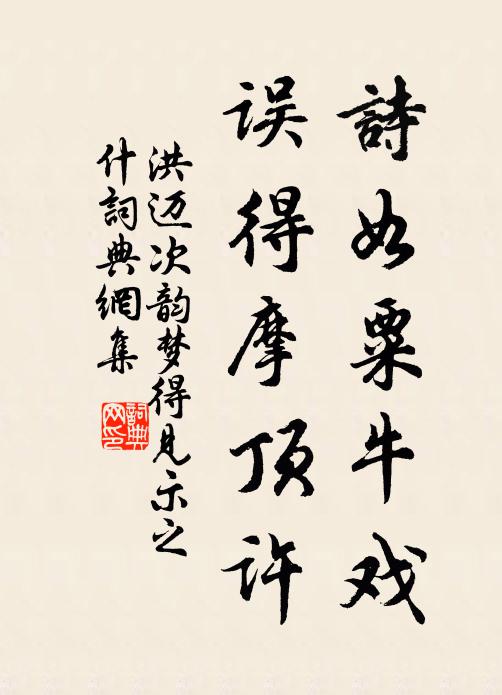 詩如粟牛戏
误得摩顶许
洪迈次韵梦得见示之
什詞典網集
詞典
网印